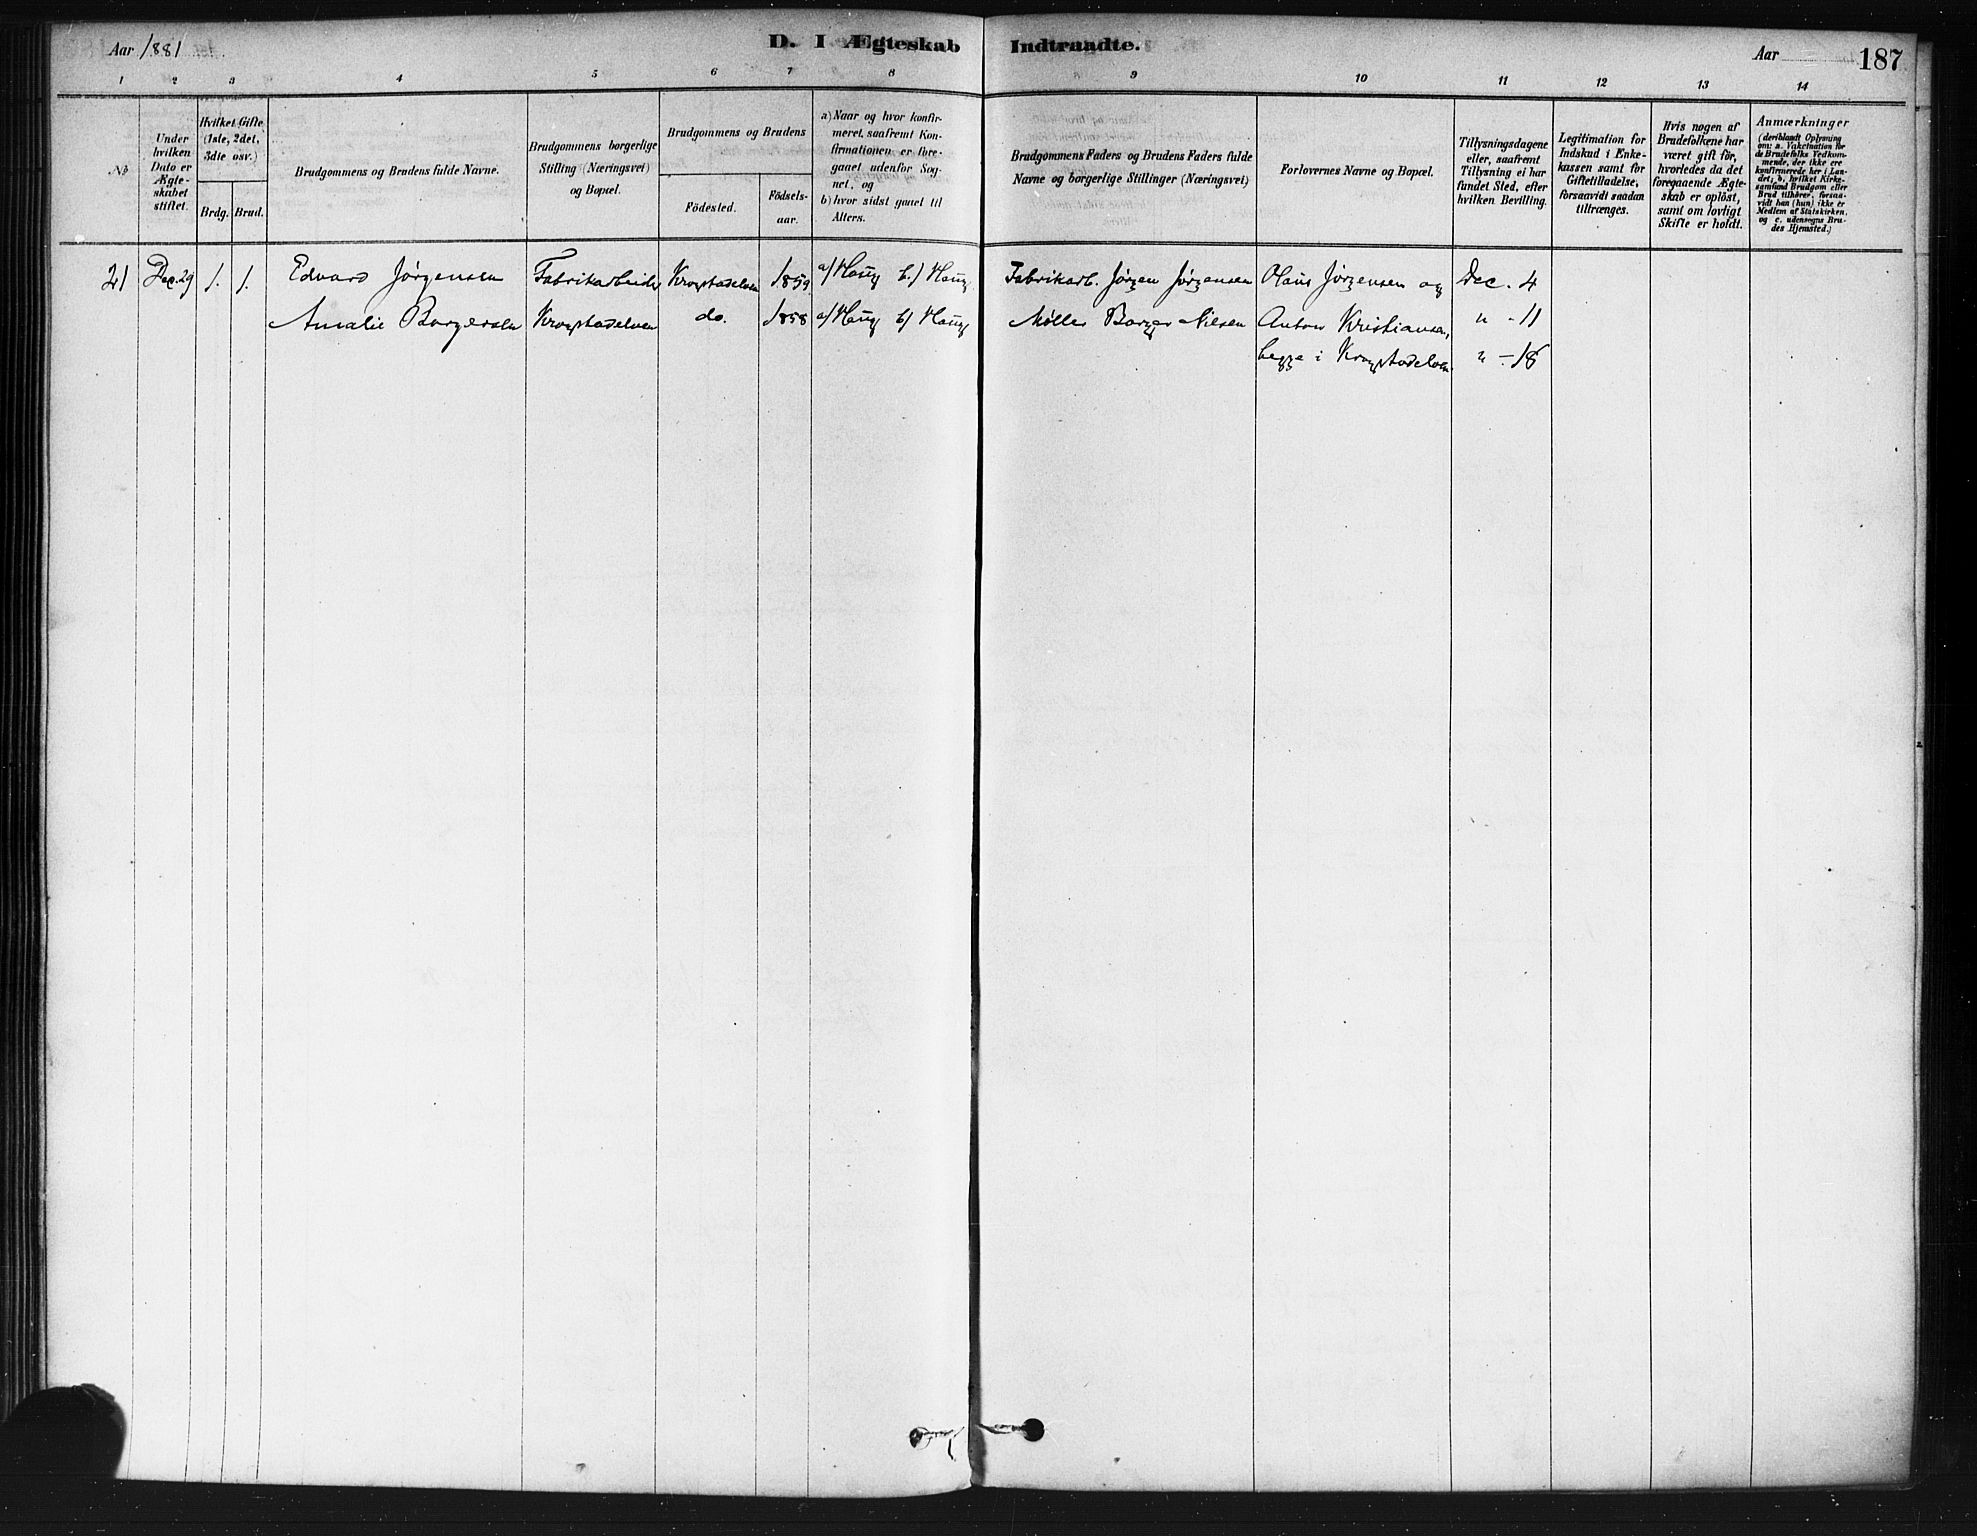 Aar 1881
D. I Ægteskab Indtraadte.
Aar
187
1 2 3 4 5 6 7 8 9 10 11 12 13 14
No
Under hvilken Dato er Ægte-skabet stiftet.
Hvilket Gifte (1ste, 2det, 3die osv.)
Brdg. Brud.
Brudgommens og Brudens fulde Navne.
Brudgommens borgerlige Stilling (Næringsvei) og Bopæl.
Brudgommens og Brudens
Födested.
Födsels-aar.
a) Naar og hvor konfir-meret, saafremt Kon-firmationen er fore-gaaet udenfor Sog-net, og
b) hvor sidst gaaet til Alters.
Brudgommens Faders og Brudens Faders fulde Navne og borgerlige Stillinger (Næringsvei)
Forlovernes Navne og Bopæl.
Tillysningsdagene eller, saafremt Tillysning ei har fundet Sted, efter hvilken Bevilling.
Legitimation for Indskud i Enke-kassen samt for Giftetilladelse, forsaavidt saadan tiltrænges.
Hvis nogen af Brudefolkene har været gift för, hvorledes da det foregaaende Ægte-skab er oplöst, samt om lovligt Skifte er holdt.
Anmærkninger (deriblandt Oplysning om: a. Vakcination for de Brudefolks Vedkom-mende, der ikke ere konfirmerede her i Lan-det; b. hvilket Kirke-samfund Brudgom eller Brud tilhörer, forsaa-vidt han (hun) ikke er Medlem af Statskirken, og c. udensogns Bru-des Hjemsted.)
21 Dec. 29 1. 1. Edvard Jørgensen Fabrikarbeider Krogstadelven 1859 a/ Haug b.) Haug Fabrikarb. Jørgen Jørgensen Olaus Jørgensen og Dec. 4
Amalie Borgersen Krogstadelven do. 1858 a/ Haug b/ Haug Møller Borger Nilsen Anton Kristiansen, " - 11
begge i Krogstadelven " - 18